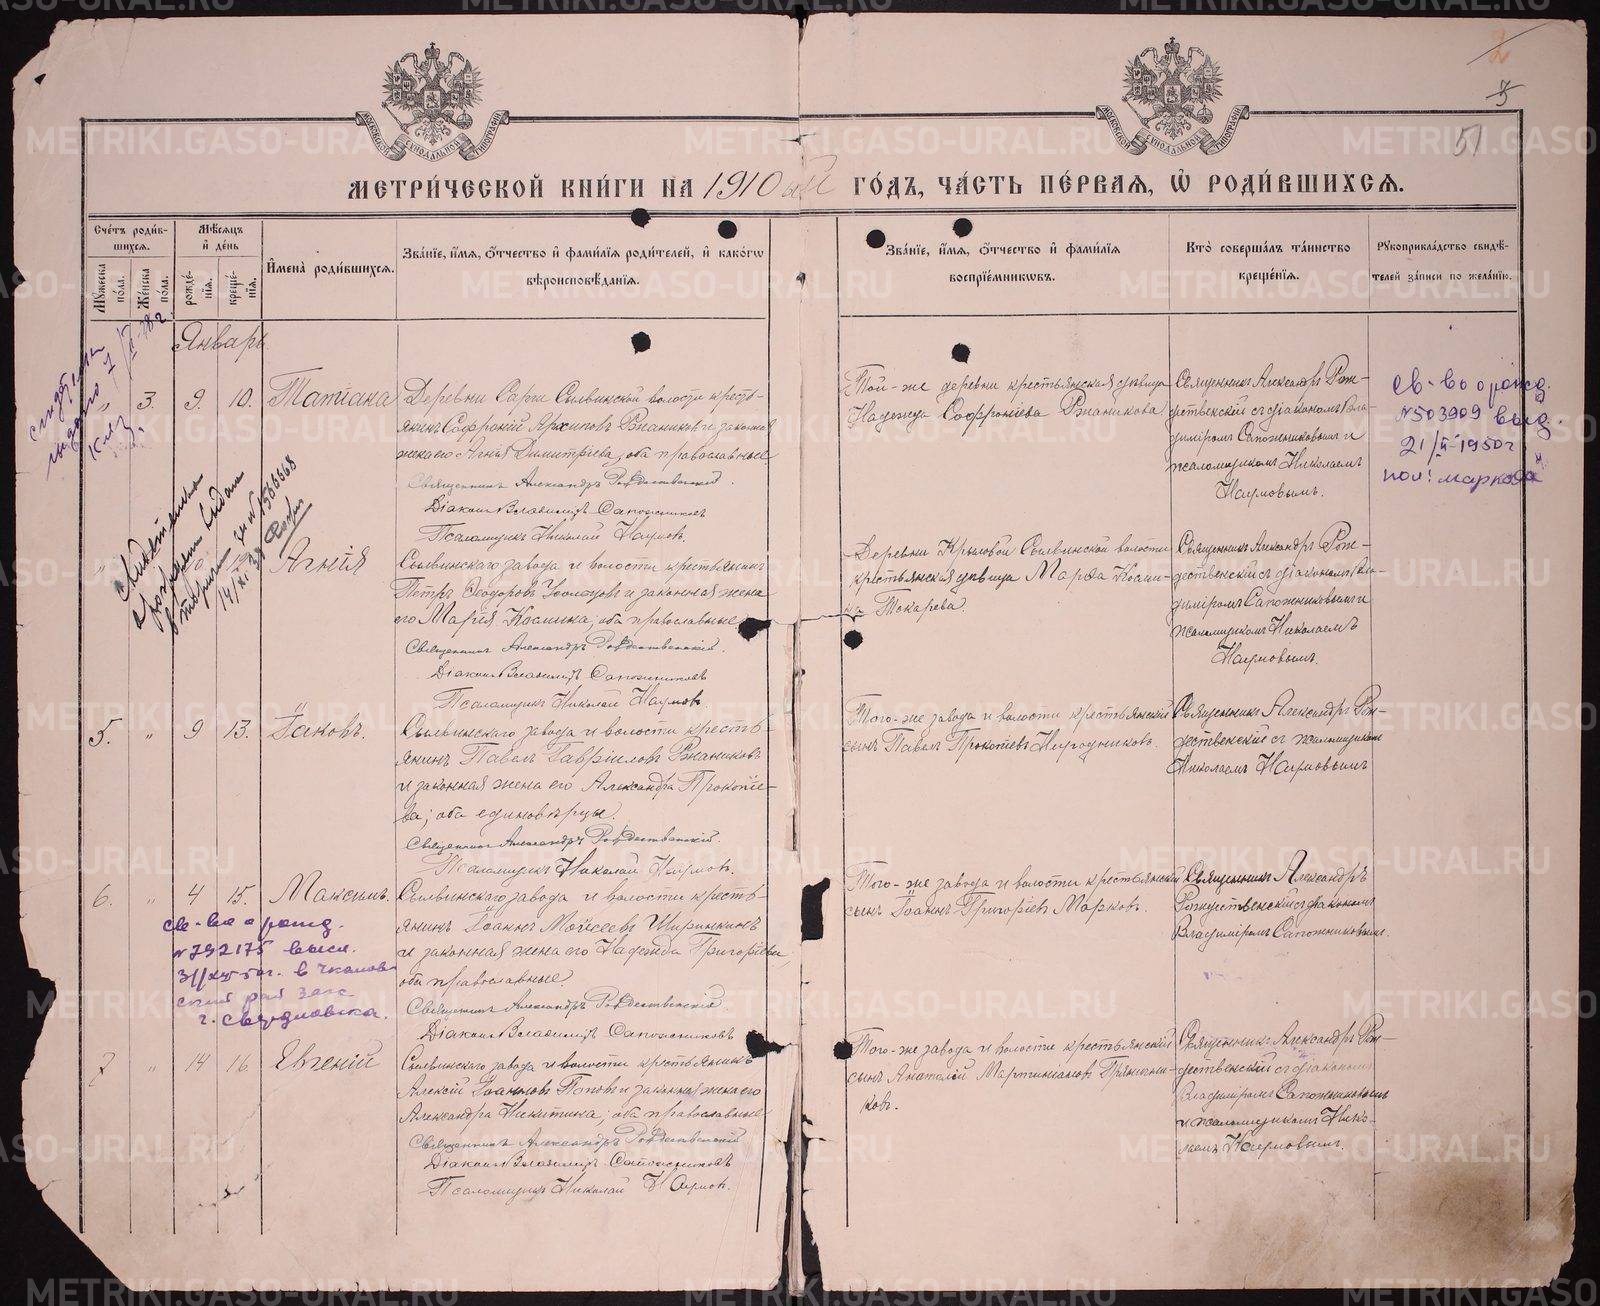 МЕТРИ́ЧЕСКОЙ КНИ́ГИ НА 1910 ый ГО́ДЪ, ЧА́СТЬ ПЕ́РВАЯ, Ѽ РОДИ́ВШИХСЯ.
МОСКОВСКОЙ СѴНОДАЛЬНОЙ ТИПОГРАФІИ
МОСКОВСКОЙ СѴНОДАЛЬНОЙ ТИПОГРАФІИ
51
Сче́тъ роди́вшихся.
Му́жеска по́ла.
Же́нска по́ла.
Мѣ́сяцъ и҆ де́нь
рожде́нїя.
креще́нїя.
И҆мена̀ роди́вшихся.
Зва́нїе, и҆́мя, ѻ҆́тчество и҆ фами́лїя роди́телей, и҆ како́гѡ
вѣроисповѣ́данїя.
Зва́нїе, и҆́мя, ѻ҆́тчество и҆ фами́лїя
воспрїе́мниковъ.
Кто̀ соверша́лъ та́инство
креще́нїя.
Рꙋкоприкла́дство свидѣ́-
телей за́писи по жела́нїю.
Январь
" 3. 9. 10. Татіана
Деревни Сарги Сылвинской волости кресть-
янинъ Софроній Архиповъ Ржанниковъ и законная
жена его Агнія Димитріева, оба православные
Священникъ Александръ Рождественскій.
Діаконъ Владиміръ Сапожниковъ
Псаломщикъ Николай Наумовъ.
Той-же деревни крестьянская дѣвица
Надежда Софроніева Ржанникова
Священникъ Александръ Рож-
дественскій съ діакономъ Вла-
диміромъ Сапожниковымъ и
псаломщикомъ Николаемъ
Наумовымъ.
Св-во о рожд.
№ 503909 выд.
21/II-1950г
пол: маркова
Свидетельство
о рождении выдан
вторично за № 1566668
Агнія
Сылвинскаго завода и волости крестьянинъ
Петръ Ѳеодоровъ и законная жена
его Марія Косьмина, оба православные
Священникъ Александръ Рождественскій.
Діаконъ Владиміръ Сапожниковъ
Псаломщикъ Николай Наумовъ.
Деревни Крыловой Сылвинской волости
крестьянская дѣвица Марѳа Косьми-
на Токарева.
Священникъ Александръ Рож-
дественскій съ діакономъ Вла-
диміромъ Сапожниковымъ и
псаломщикомъ Николаемъ
Наумовымъ.
5. " 9 13. Іаковъ.
Сылвинскаго завода и волости кресть-
янинъ Павелъ Гавріиловъ Ржанниковъ
и законная жена его Александра Прокопіе-
ва; оба единовѣрцы.
Священникъ Александръ Рождественскій
Псаломщикъ Николай Наумовъ.
Того-же завода и волости крестьянскій
сынъ Павелъ Прокопіевъ
Священникъ Александръ Рож-
дественскій съ псаломщикомъ
Николаемъ Наумовымъ
6. " 4 15. Максимъ.
св-во о рожд.
№ 792175 высл.
в Чкалов-
ский рай загс
г. Свердловска.
Сылвинскаго завода и волости кресть-
янинъ Іоаннъ Моисеевъ Ширинкинъ
и законная жена его Надежда Григоріева,
оба православные.
Священникъ Александръ Рождественскій
Діаконъ Владиміръ Сапожниковъ
Того-же завода и волости крестьянскій
сынъ Іоаннъ Григоріевъ Марковъ.
Священникъ Александръ
Рождественскій съ діакономъ
Владиміромъ Сапожниковымъ.
7 " 14 16. Евгеній
Сылвинскаго завода и волости крестьянинъ
Алексій Іоанновъ Поповъ и законная жена его
Александра Никитина; оба православные
Священникъ Александръ Рождественскій
Діаконъ Владиміръ Сапожниковъ
Псаломщикъ Николай Наумовъ.
Того-же завода и волости крестьянскій
сынъ Анатолій Мартиніановъ Пряничн-
ковъ.
Священникъ Александръ Рож-
дественскій съ діакономъ
Владиміромъ Сапожниковымъ
и псаломщикомъ Нико-
лаемъ Наумовымъ.
METRIKI.GASO-URAL.RU